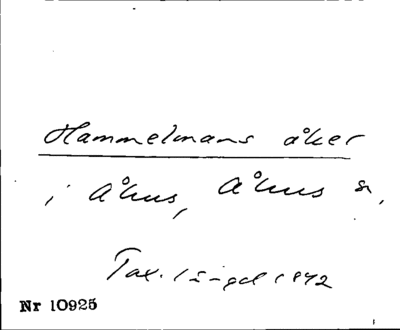 Hammelmans åker
i Åhus, Åhus sn,
Tax. längd 1872
Nr 10925